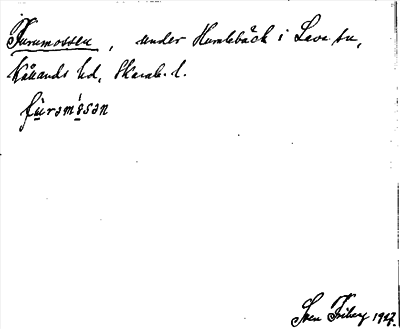 Furumossen, under Humlebäck i Leva sn,
Kåkinds hd, Skarab. l.
fùrəmósən
Sven Friberg 1927.